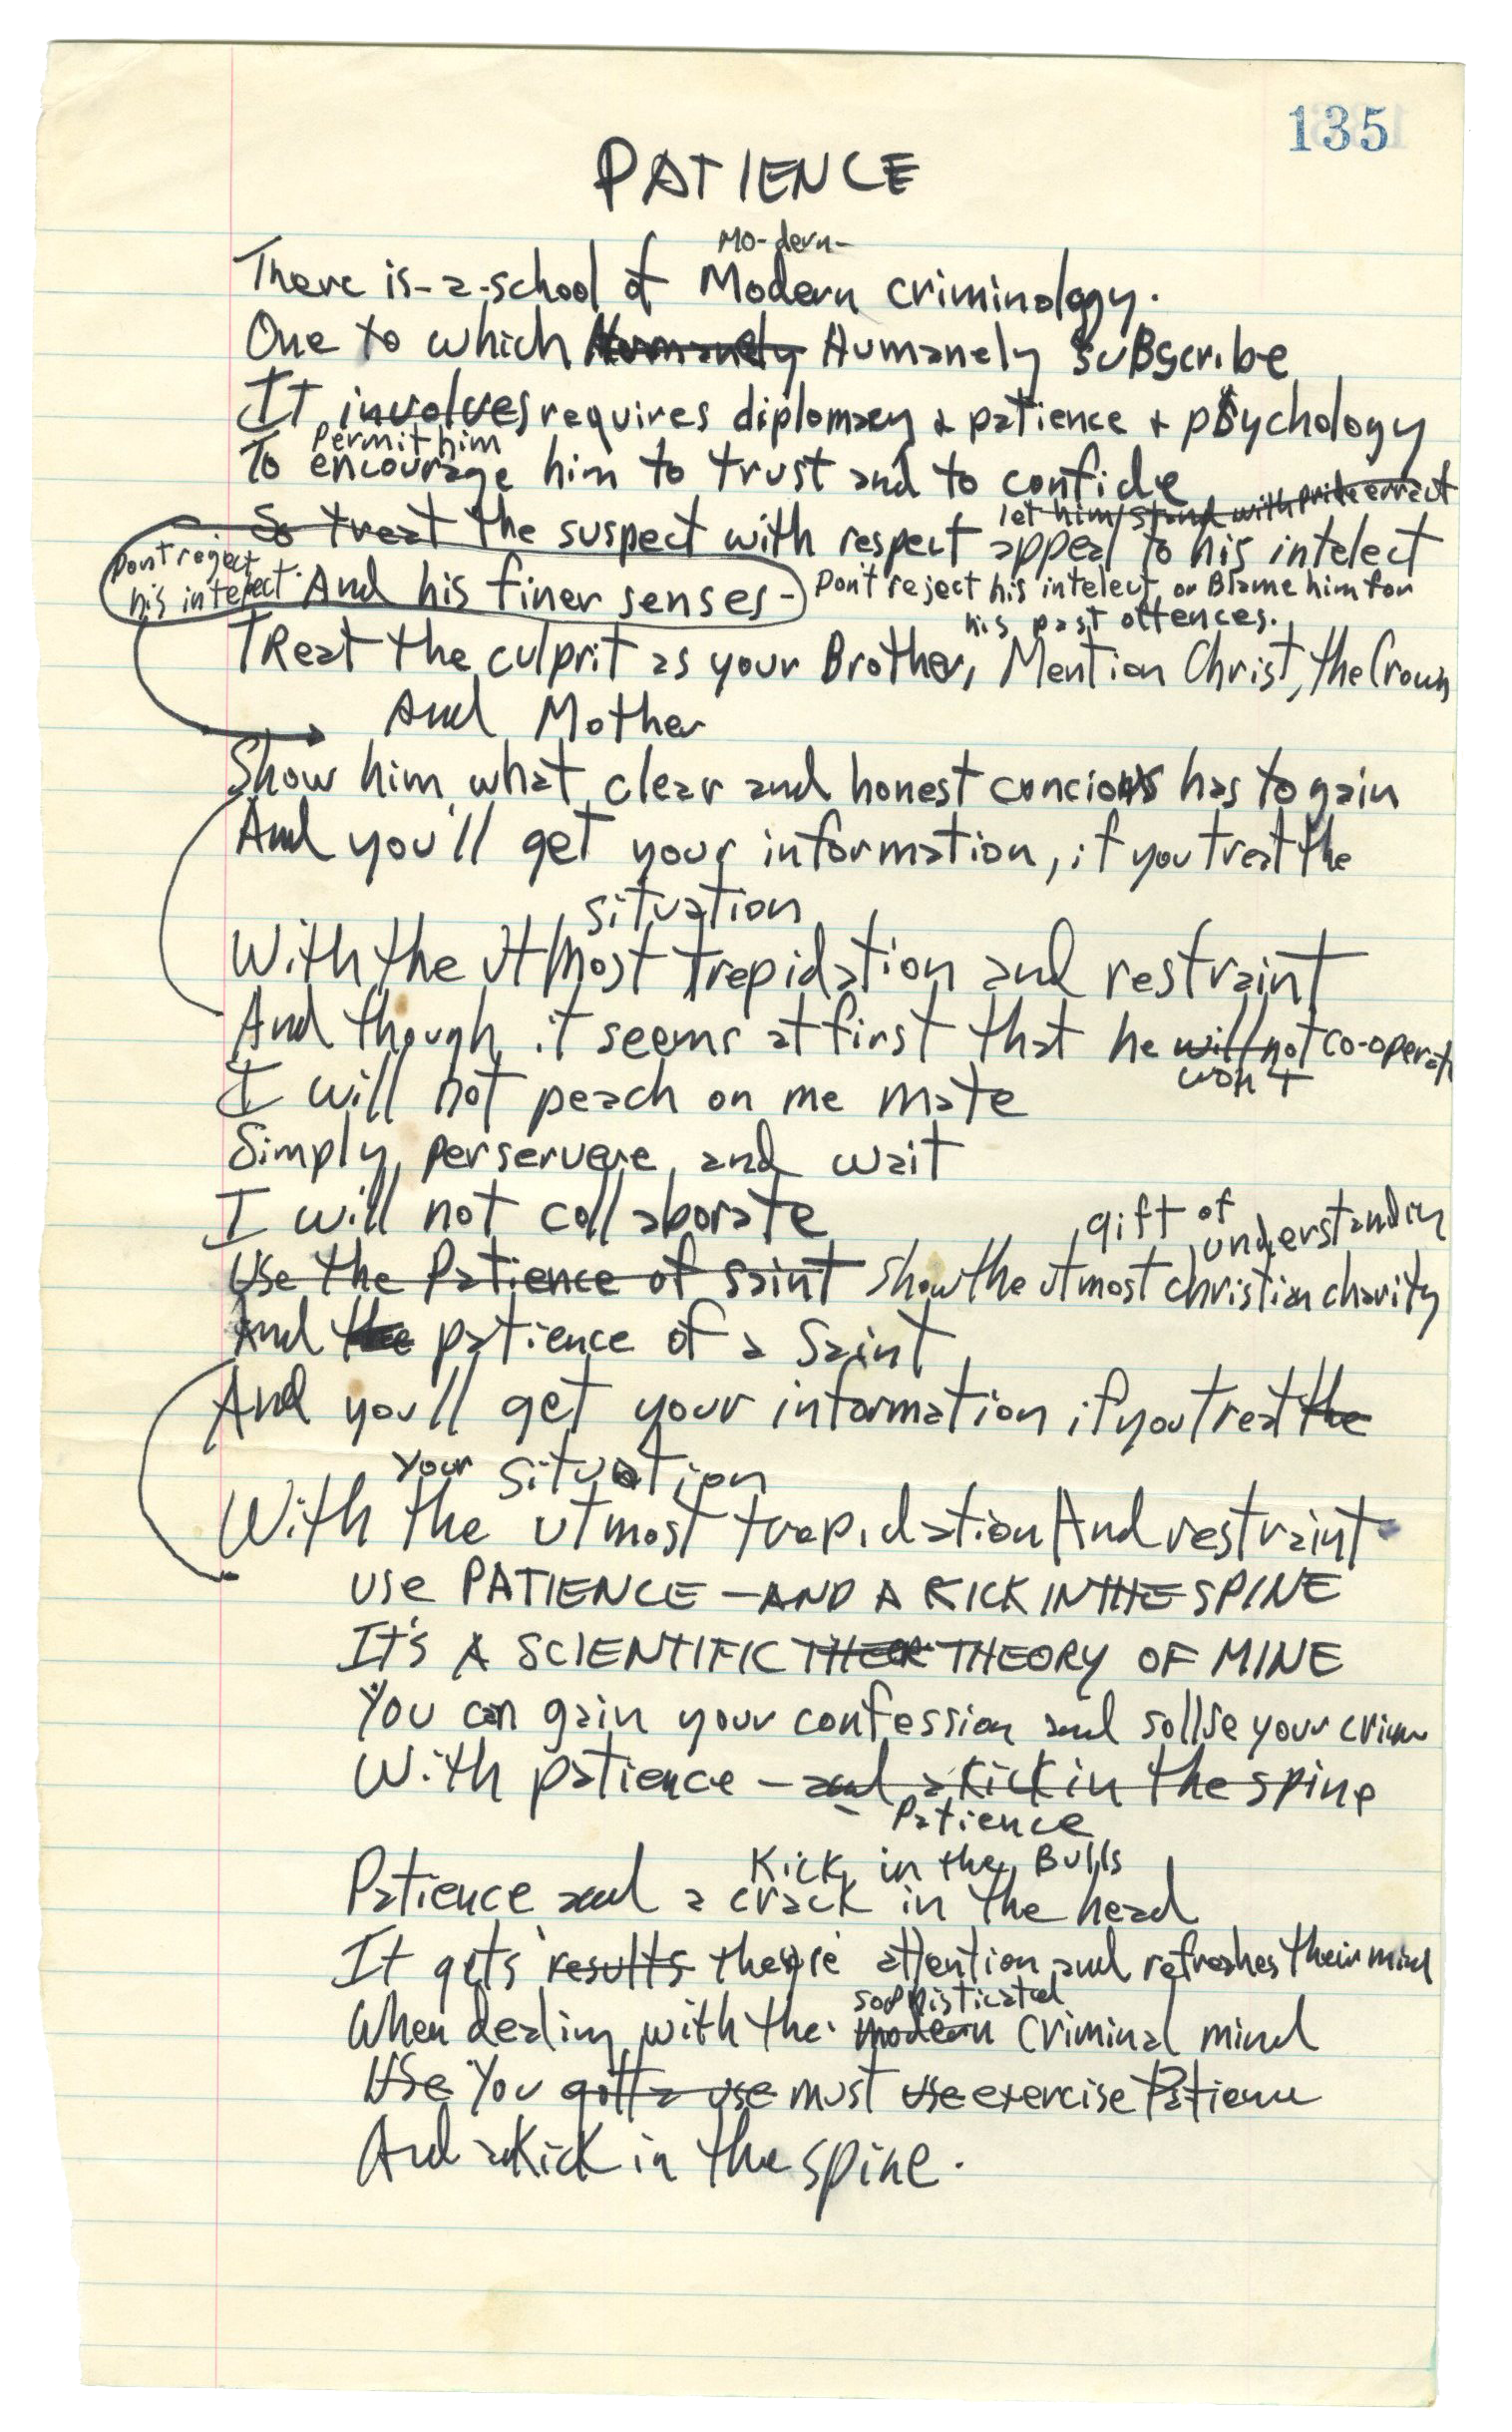 135
PATIENCE
Mo-dern-
There is-a-school of Modern criminology.
One to which Humanely Humanely suBscribe
It involves requires diplomacy & patience + psychology
Permit him
To encourage him to trust and to confide
let him stand with pride erract
So treat the suspect with respect appeal to his intelect
Dont reject
his intelect. And his finer senses- Don't reject his intelect, or Blame him for
his past offences.
TReat the culprit as your Brother, Mention Christ, the Crown
And Mother
Show him what clear and honest concious has to gain
And you'll get your information, if you treat the
situation
With the utmost trepidation and restraint
And though it seems at first that he will not co-operate
won't
I will not peach on me mate
Simply perservere and wait
I will not collaborate
gift of
understanding
Use the Patience of saint Show the utmost christian charity
And the patience of a Saint
And you'll get your information if you treat the
your situation
With the utmost trepidation And restraint
USE PATIENCE - AND A KICK IN THE SPINE
It's A SCIENTIFIC THEOR THEORY OF MINE
You can gain your confession and sollve your crime
With patience - and a kick in the spine
- Patience
Kick in the Bulls
Patience and a crack in the head
It gets results they're attention and refreshes their mind
sophisticated
When dealing with the modern criminal mind
Use You gotta use must use exercise Patience
And a Kick in the spine.